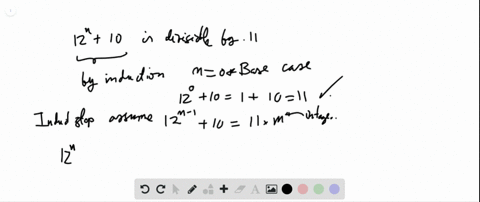 12^n + 10 is divisible by 11
by induction n=0 Base case
12^0 + 10 = 1 + 10 = 11 ✓
Induc step assume 12^{n-1} + 10 = 11 × m integer..
12^n